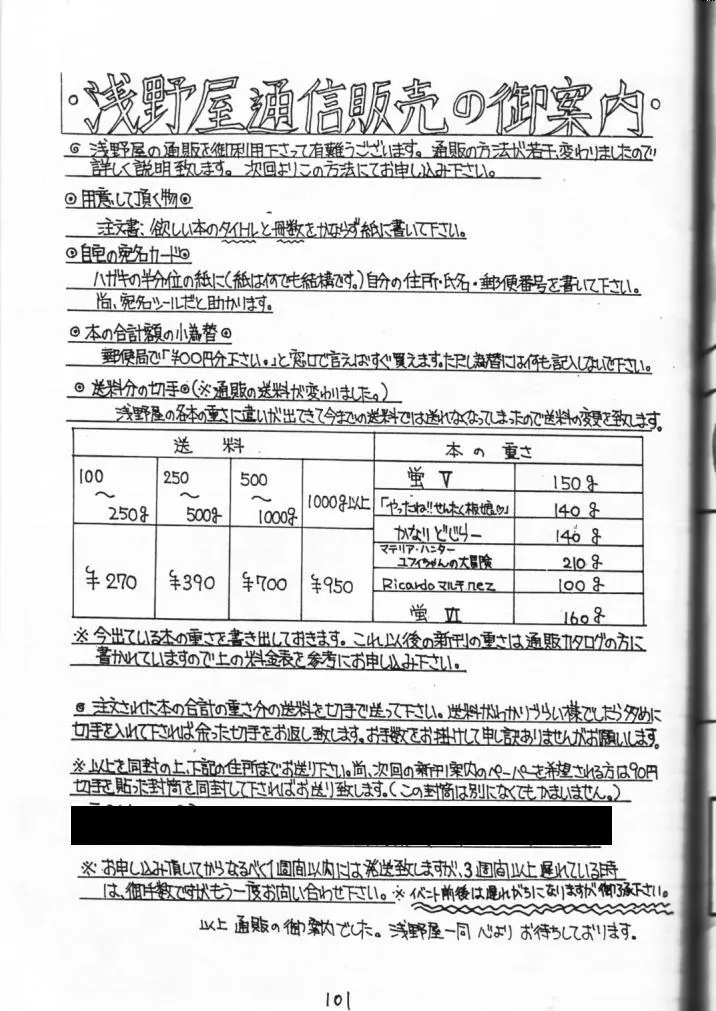 ・浅野屋通信販売の御案内・
◎ 浅野屋の通販を御利用下さって有難うございます。通販の方法が若干、変わりましたので
詳しく説明致します。次回よりこの方法にてお申し込み下さい。
◎用意して頂く物◎
注文書、欲しい本のタイトルと冊数をかならず紙に書いて下さい。
◎自宅の宛名カード◎
ハガキの半分位の紙に(紙は何でも結構です。)自分の住所・氏名・郵便番号を書いて下さい。
尚、宛名シールだと助かります。
◎ 本の合計額の小為替◎
郵便局で「¥○○円分下さい。」と窓口で言えばすぐ買えます。ただし為替には何も記入しないで下さい。
◎ 送料分の切手◎(※通販の送料が変わりました。)
浅野屋の各本の重さに違いが出てきて今までの送料では送れなくなってしまったので送料の変更を致します。
送料 本の重さ
100〜250g 250〜500g 500〜1000g 1000g以上
¥270 ¥390 ¥700 ¥950
蛍 Ⅴ 150g
「やったね!!せんたく板娘♡」 140g
かなりどじらー 140g
マテリア・ハンター
ユフィちゃんの大冒険 210g
Ricardo マルチnez 100g
蛍 Ⅵ 160g
※ 今出ている本の重さを書き出しておきます。これ以後の新刊の重さは通販カタログの方に
書かれていますので上の料金表を参考にお申し込み下さい。
◎ 注文された本の合計の重さ分の送料を切手で送って下さい。送料がわかりづらい様でしたら多めに
切手を入れて下されば余った切手をお返し致します。お手数をお掛けして申し訳ありませんがお願いします。
※以上を同封の上、下記の住所までお送り下さい。尚、次回の新刊案内のペーパーを希望される方は90円
切手を貼った封筒を同封して下さればお送り致します。(この封筒は別になくてもかまいません。)
※ お申し込み頂いてからなるべく1週間以内には発送致しますが、3週間以上遅れている時
は、御手数ですがもう一度お問い合わせ下さい。※イベント前後は遅れがちになりますが御了承下さい。
以上 通販の御案内でした。浅野屋一同 心よりお待ちしております。
101